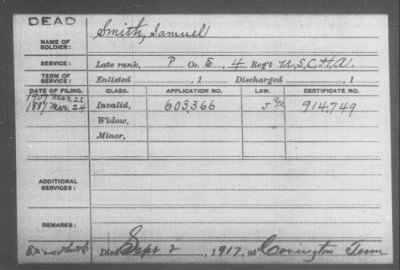 DEAD
NAME OF SOLDIER: Smith, Samuel
SERVICE: Late rank, P Co. E, 4 Reg't U.S.C.H.A.
TERM OF SERVICE: Enlisted , 1 Discharged , 1
DATE OF FILING. CLASS. APPLICATION NO. LAW. CERTIFICATE NO.
1907 Mar. 22
1887 Mar. 24 Invalid, 603,366 J 914,749
Widow,
Minor,
ADDITIONAL SERVICES:
REMARKS:
Died Sept 2, 1917, at Covington Tenn